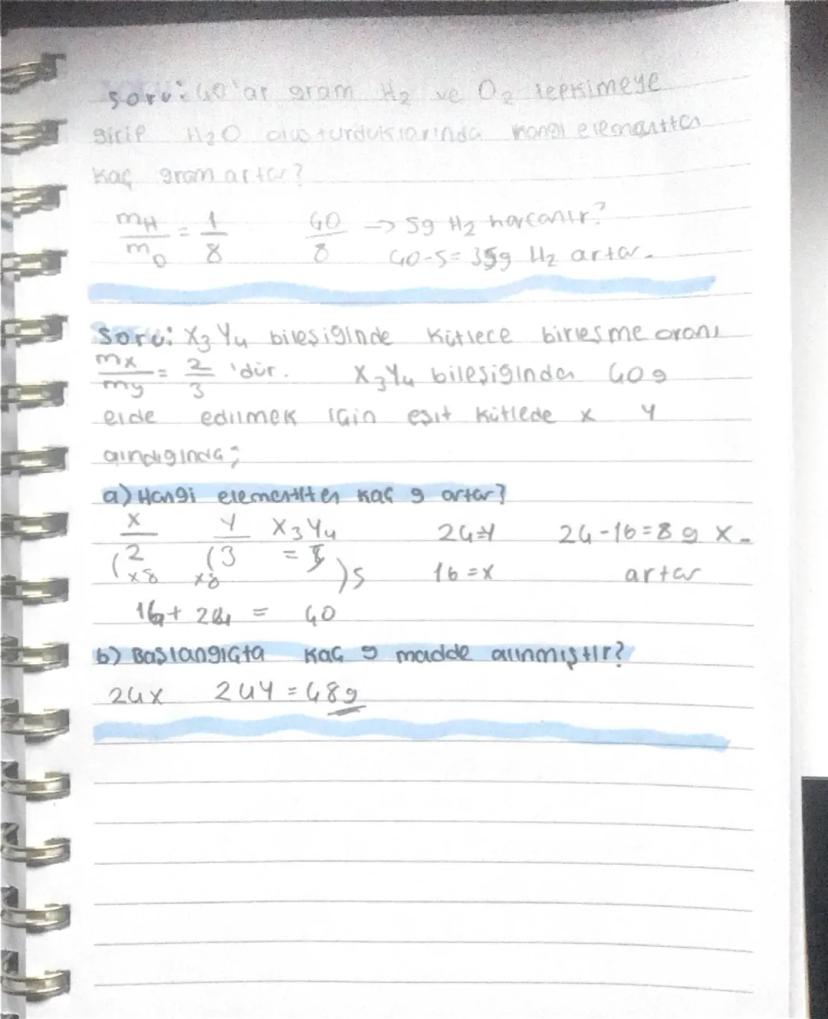 Soru: 40'ar gram H2 ve O2 tepkimeye
girip H2O oluşturduklarında hangi elementten
kaç gram artar?
mH/mO = 1/8 40/8 → 5g H2 harcanır.
40-5=35g H2 artar.
Soru: X3Y4 bileşiğinde kütlece birleşme oranı
mx/my = 2/3 'dür. X3Y4 bileşiğinden 40 g
elde edilmek için eşit kütlede x y
alındığında;
a) Hangi elementten kaç g artar?
X Y X3Y4 24=Y 24-16=8 g X
(2 (3 = 5 )5 16=x artar
x8 x8
16+24 = 40
b) Başlangıçta kaç g madde alınmıştır?
24x 24Y = 48g